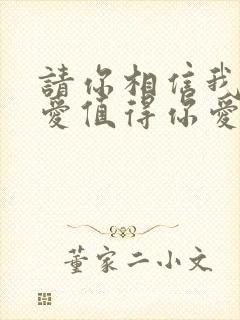 請你相信我
愛值得你愛
董家二小文